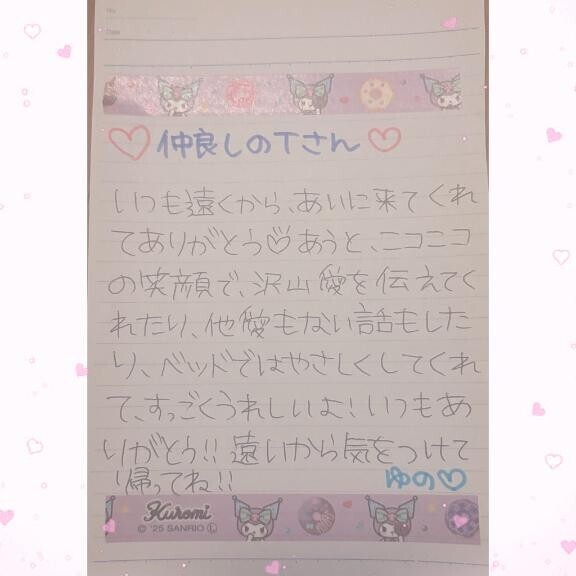 No.
Date
♡仲良しのTさん♡
いつも遠くから、あいに来てくれ
てありがとう♡あうと、ニコニコ
の笑顔で、沢山愛を伝えてく
れたり、他愛もない話もした
り、ベッドではやさしくしてくれ
て、すっごくうれしいよ!いつもあ
りがとう!!遠いから気をつけて
帰ってね!!
ゆの♡
Kuromi
© '25 SANRIO Ⓛ